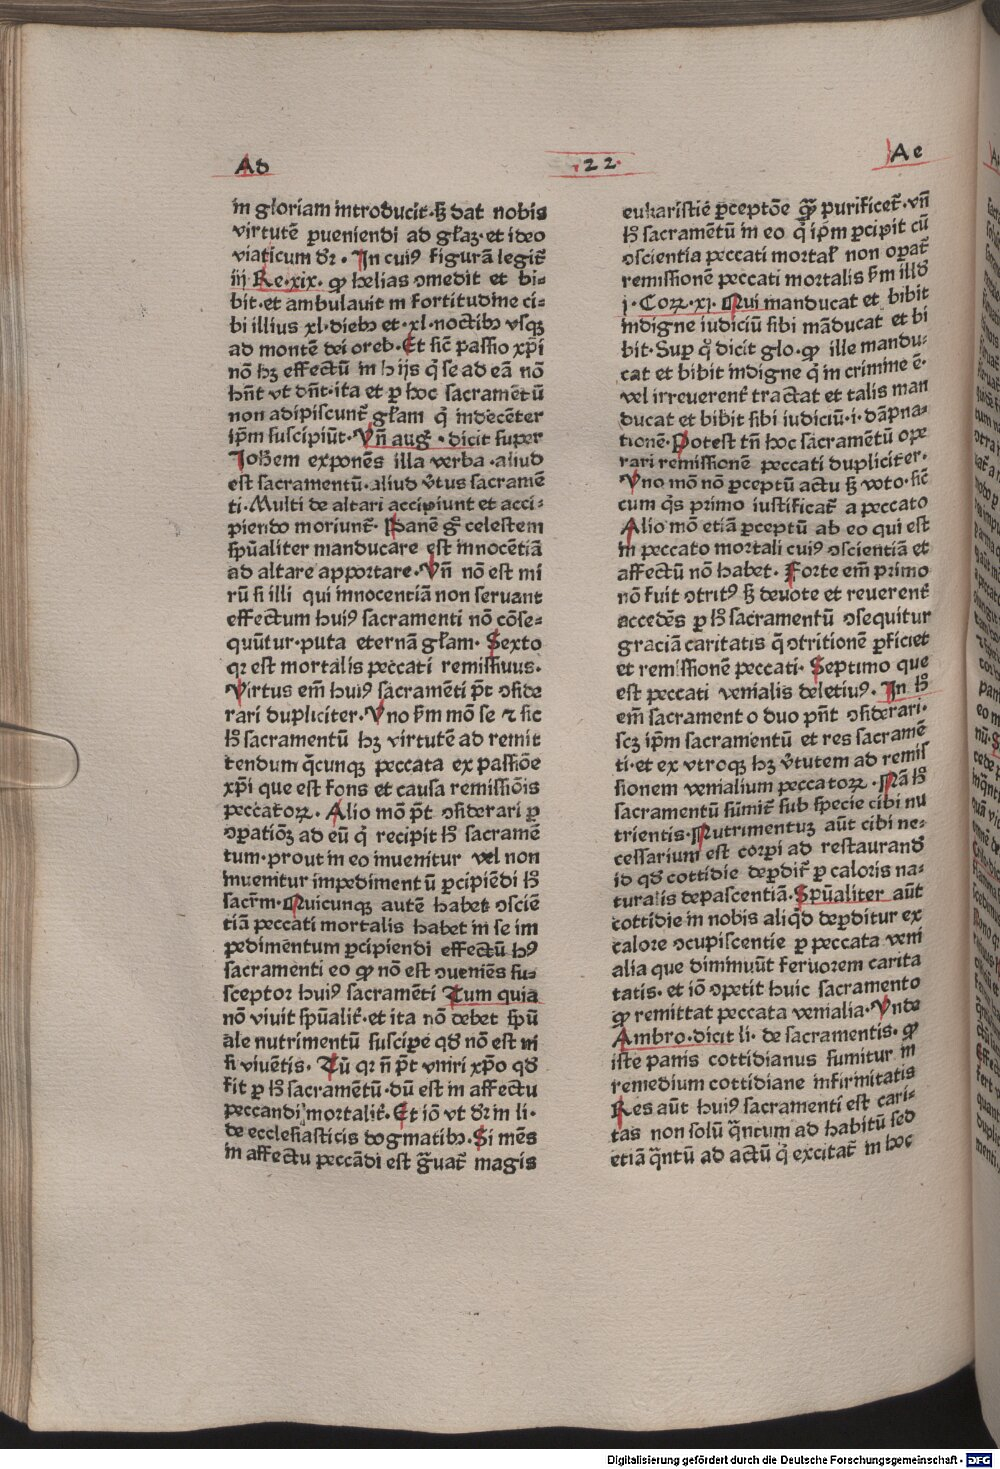 Ad
.22.
Ae
in gloriam introducit·sꝫ dat nobis
virtutē ꝑueniendi ad gl̄aꝫ·et ideo
viaticum dr̄. In cuiꝰ figurā legit᷑
iij Re·xix. ꝙ helias ꝯmedit et bi-
bit·et ambulauit in fortitudine ci-
bi illius xl·diebꝫ et·xl·noctibꝫ vsqꝫ
ad montē dei oreb·Et sic̄ passio xp̄i
nō hꝫ effectū in hijs q̇ se ad eā nō
hn̄t vt dn̄t·ita et ꝑ hoc sacramētū
non adipiscunt᷑ gl̄am q̇ indecēter
ip̄m suscipiūt·Vn̄ aug᷑·dicit super
Joh̄em exponēs illa verba·aliud
est sacramentū·aliud v̄tus sacramē
ti·Multi de altari accipiunt et acci-
piendo moriunt᷑·Panē g̊ celestem
sp̄ualiter manducare est innocētiā
ad altare apportare·Vn̄ nō est mi
rū si illi qui innocentiā non seruant
effectum huiꝰ sacramenti nō cōse-
quūtur·puta eternā gl̄am·Sexto
qꝛ est mortalis peccati remissiuus.
Virtus em̄ huiꝰ sacramēti pt̄ ꝯside
rari dupliciter·Vno sm̄ mō se ⁊ sic
h̊ sacramentū hꝫ virtutē ad remit
tendum q̄cunqꝫ peccata ex passiōe
xp̄i que est fons et causa remissiōis
peccatoꝝ·Alio mō pt̄ ꝯsiderari ꝑ
ꝯpatiōꝫ ad eū q̇ recipit h̊ sacramē
tum·prout in eo inuenitur vel non
inuenitur impedimentū ꝑcipiēdi h̊
sacr̄m·Quicunqꝫ autē habet ꝯsciē
tiā peccati mortalis habet in se im
pedimentum ꝑcipiendi effectū hꝰ
sacramenti eo ꝙ nō est ꝯueniēs su-
sceptor huiꝰ sacramēti Tum quia
nō viuit sp̄ualit᷑·et ita nō debet sp̄u
ale nutrimentū suscipe qd̄ nō est ni
si viuētis. Tū qꝛ n̄ pt̄ vniri xp̄o qd̄
fit ꝑ h̊ sacramētū·dū est in affectu
peccandi mortalit᷑·Et iō vt dr̄ in li·
de ecclesiasticis dogmatibꝫ·Si mēs
in affectu peccādi est g̃uat᷑ magis
eukaristie ꝑceptōe q̄ꝫ purificet᷑·vn̄
h̊ sacramētū in eo q̇ ip̄m ꝑcipit cū
ꝯscientia peccati mortal̄ non oꝑat᷑
remissionē peccati mortalis sm̄ illd̄
j·Coꝝ·xj·Qui manducat et bibit
indigne iudiciū sibi māducat et bi
bit·Sup qd̄ dicit glo·ꝙ ille mandu-
cat et bibit indigne q̇ in crimine ē·
vel irreuerent᷑ tractat et talis man
ducat et bibit sibi iudiciū·i·dāpna-
tionē·Potest tn̄ hoc sacramētū ope
rari remissionē peccati dupliciter.
Vno mō nō ꝑceptū actu sꝫ voto·sic̄
cum q̇s primo iustificat᷑ a peccato
Alio mō etiā ꝑceptū ab eo qui est
in peccato mortali cuiꝰ ꝯscientiā et
affectū nō habet. Forte em̄ primo
nō fuit ꝯtritꝰ sꝫ deuote et reuerent᷑
accedēs ꝑ h̊ sacramentū ꝯsequitur
graciā caritatis q̄ ꝯtritionē ꝑficiet
et remissionē peccati·Septimo que
est peccati venialis deletiuꝰ. In h̊
em̄ sacramento duo pn̄t ꝯsiderari·
scꝫ ip̄m sacramentū et res sacramē
ti·et ex vtroqꝫ hꝫ v̄tutem ad remis
sionem venialium peccatoꝝ·Nā h̊
sacramentū sūmit᷑ sub specie cibi nu
trientis·Nutrimentuꝫ aūt cibi ne-
cessarium est corpi ad restaurand̄
id qd̄ cottidie deꝑdit᷑ ꝑ caloris na-
turalis depascentiā·Sp̄ualiter aūt
cottidie in nobis aliq̇d deꝑditur ex
calore ꝯcupiscentie ꝑ peccata veni
alia que diminuūt feruorem carita
tatis·et iō ꝯpetit huic sacramento
ꝙ remittat peccata venialia·Vnde
Ambro·dicit li·de sacramentis·ꝙ
iste panis cottidianus sumitur in
remedium cottidiane infirmitatis
Res aūt huiꝰ sacramenti est cari-
tas non solū q̄ntum ad habitū sed
etiā q̄ntū ad actū q̇ excitat᷑ in hoc
Digitalisierung gefördert durch die Deutsche Forschungsgemeinschaft - DFG